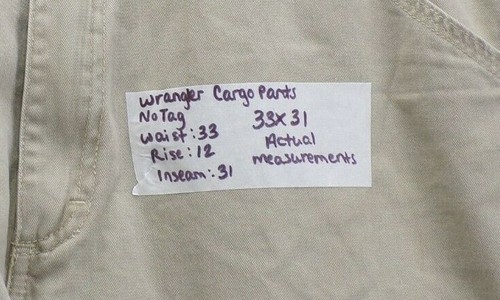 Wrangler Cargo Pants
No Tag
Waist: 33
Rise: 12
Inseam: 31
33x31
Actual
measurements